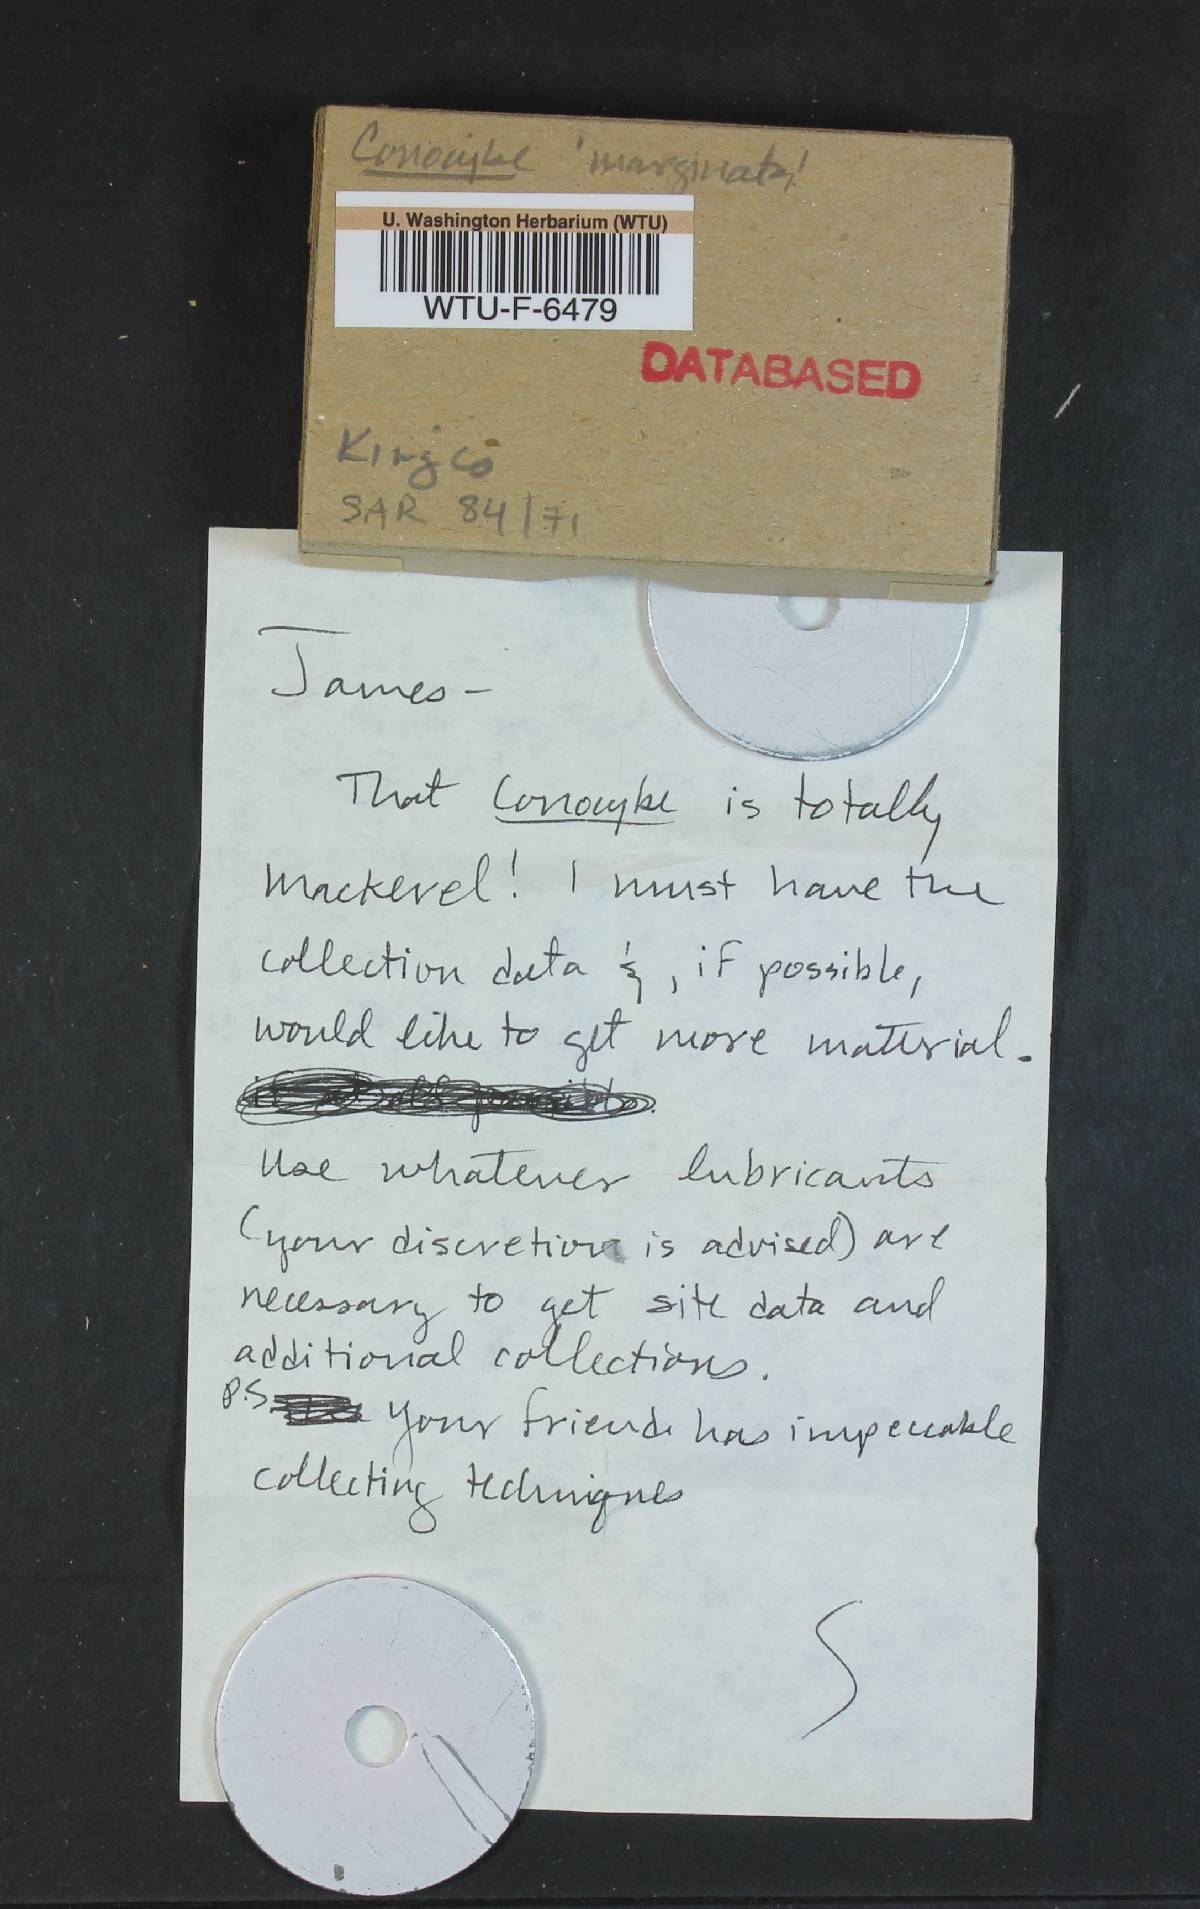 Conocybe 'marginata'
U. Washington Herbarium (WTU)
WTU-F-6479
DATABASED
King Co
SAR 84/71
James-
That Conocybe is totally
mackerel! I must have the
collection data &, if possible,
would like to get more material.
Use whatever lubricants
(your discretion is advised) are
necessary to get site data and
additional collections.
P.S. Your friend has impeccable
collecting techniques
S